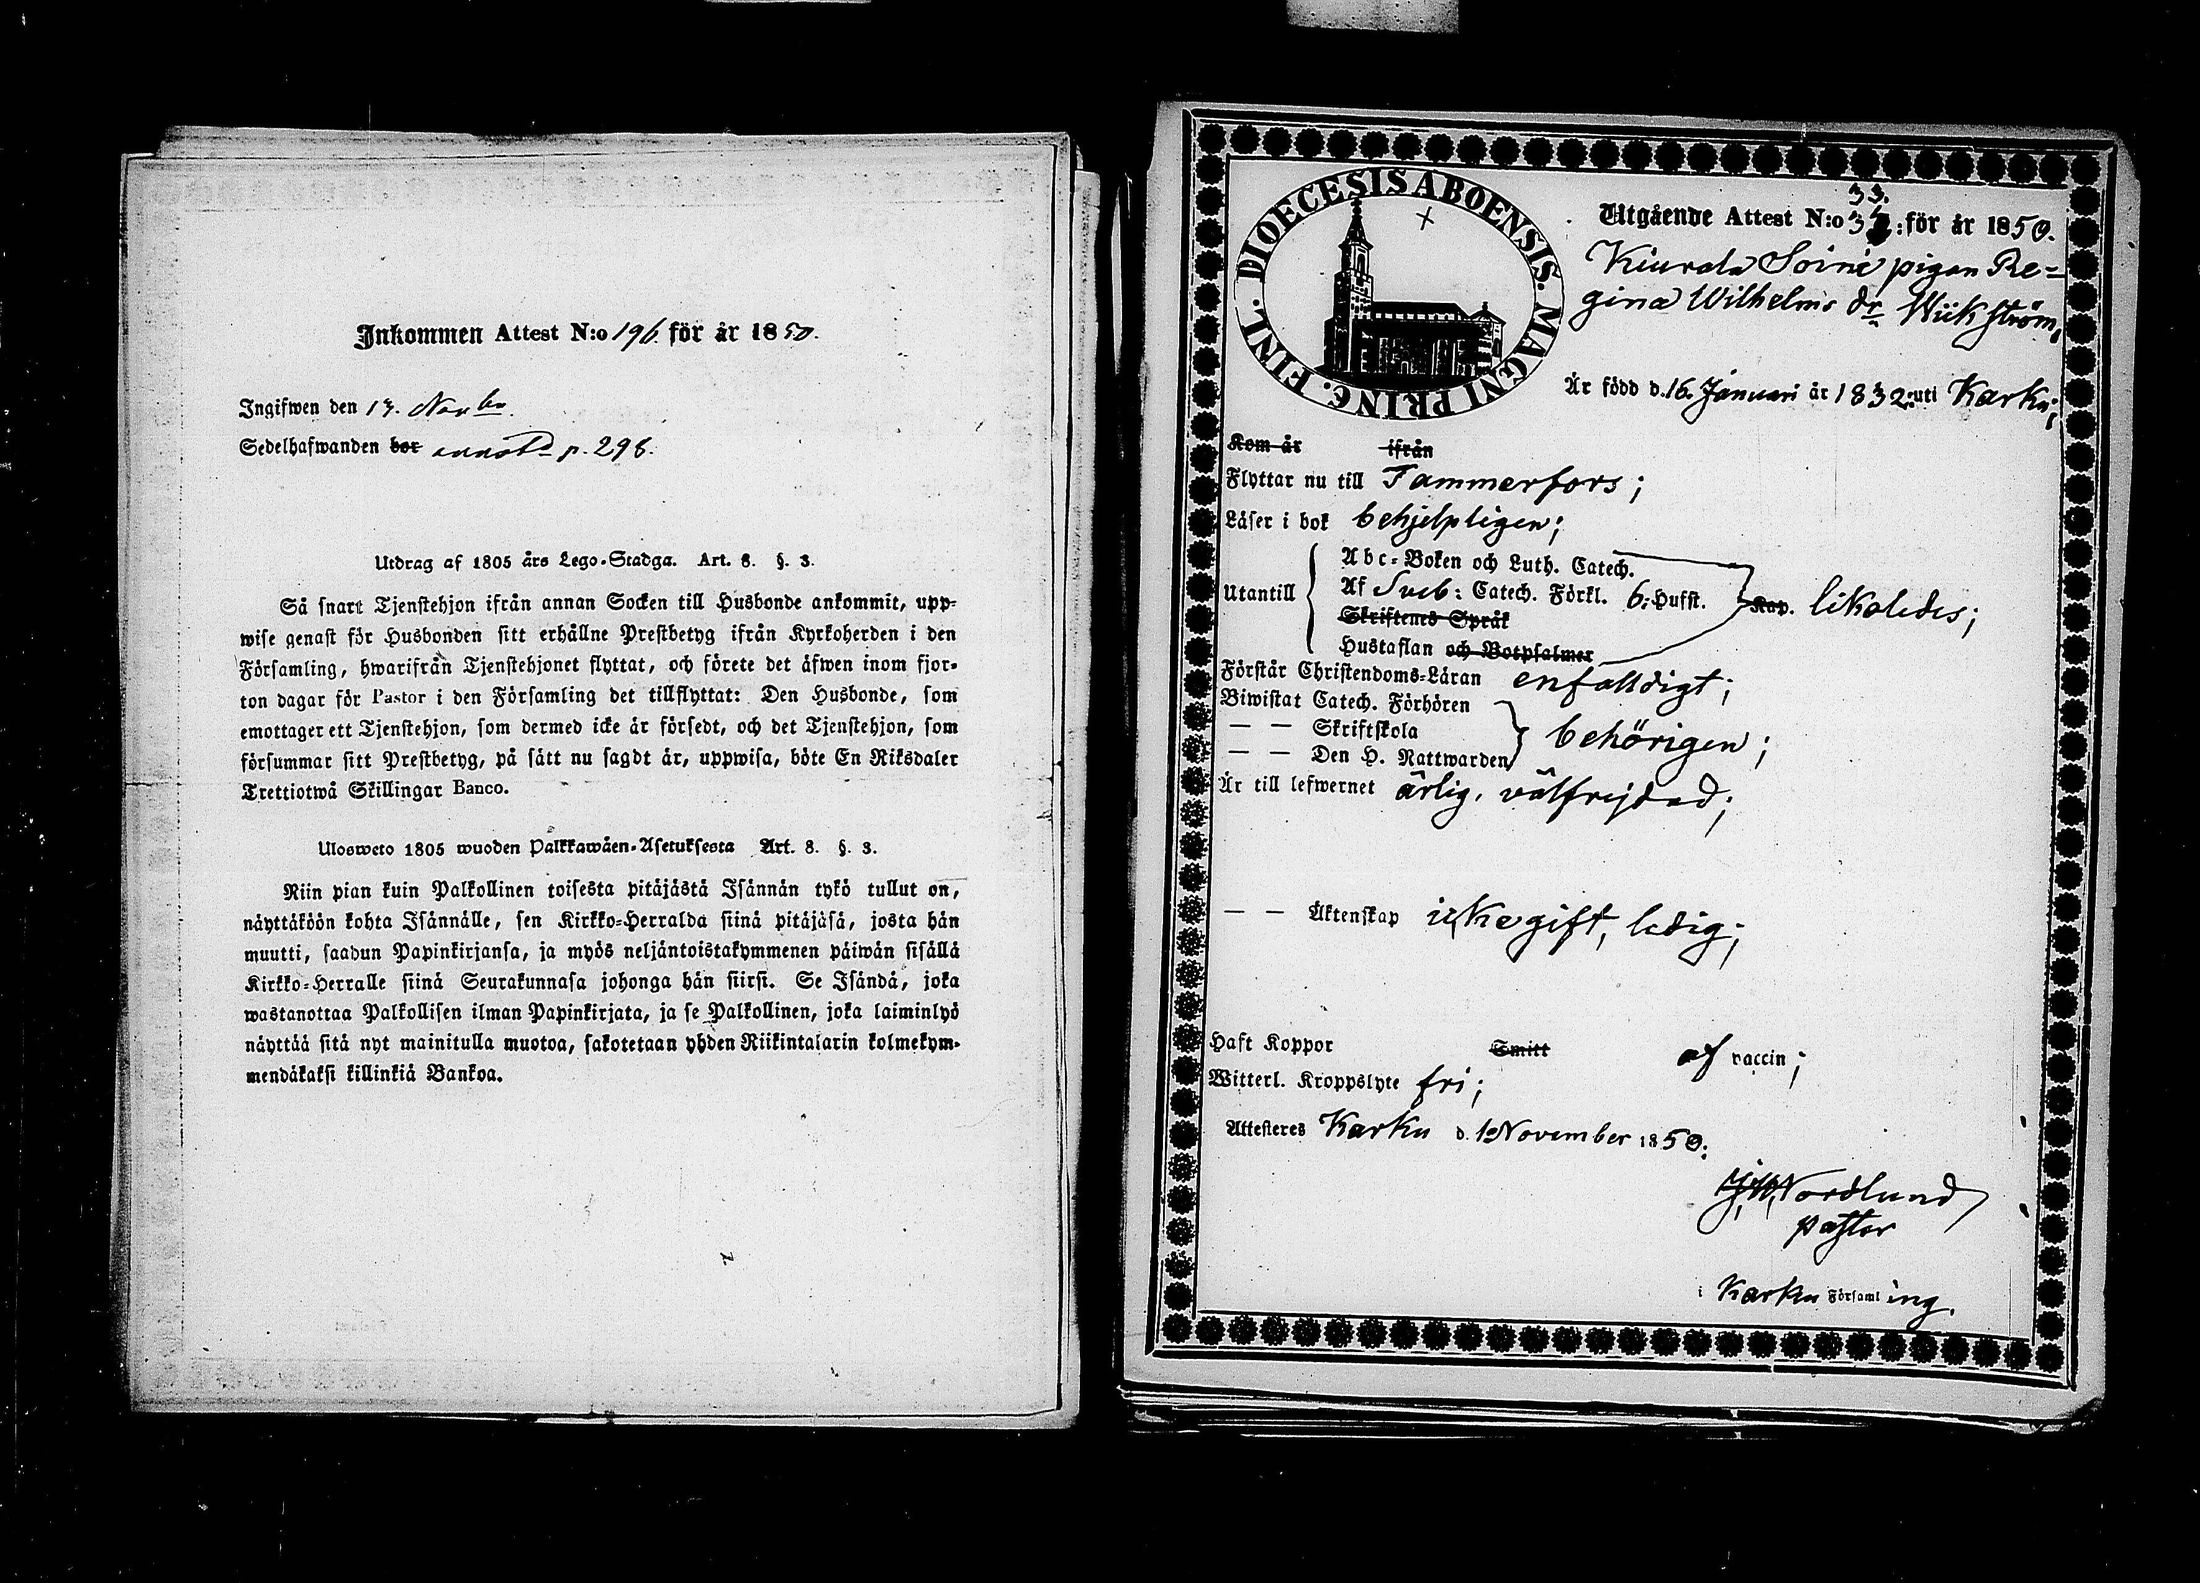 Inkommen Attest N:o 196. för år 1850.
Ingifwen den 13. Novbr.
Sedelhafwanden bor p. 298.
Utdrag af 1805 års Lego-Stadga. Art. 8. §. 3.
Så snart Tjenstehjon ifrån annan Socken till Husbonde ankommit, upp-
wise genast för Husbonden sitt erhållne Prestbetyg ifrån Kyrkoherden i den
Församling, hwarifrån Tjenstehjonet flyttat, och förete det äfwen inom fjor-
ton dagar för Pastor i den Församling det tillflyttat: Den Husbonde, som
emottager ett Tjenstehjon, som dermed icke är försedt, och det Tjenstehjon, som
försummar sitt Prestbetyg, på sätt nu sagdt är, uppwisa, böte En Riksdaler
Trettiotwå Skillingar Banco.
Ulosweto 1805 wuoden Palkkawäen-Asetuksesta Art. 8. §. 3.
Niin pian kuin Palkollinen toisesta pitäjästä Isännän tykö tullut on,
näyttäköön kohta Isännälle, sen Kirkko-Herralda siinä pitäjäsä, josta hän
muutti, saadun Papinkirjansa, ja myös neljäntoistakymmenen päiwän sisällä
Kirkko-Herralle siinä Seurakunnasa johonga hän siirsi. Se Isändä, joka
wastanottaa Palkollisen ilman Papinkirjata, ja se Palkollinen, joka laiminlyö
näyttää sitä nyt mainitulla muotoa, sakotetaan yhden Riikintalarin kolmekym-
mendäkaksi killinkiä Bankoa.
DIOECESIS ABOENSIS. MAGNI PRINC. FINL.
33.
Utgående Attest N:o :för år 1850.
Kiurala Soini pigan Re-
gina Wilhelms dr Wiikström,
Är född d. 16. Januari år 1832. uti Karku;
Kom år ifrån
Flyttar nu till Tammerfors;
Läser i bok behjelpligen;
Utantill
Abc-Boken och Luth. Catech.
Af Sveb: Catech. Förkl. 6. Hufst. Kap. likaledes;
Skriftenes Språk
Hustaflan och Botpsalmer
Förstår Christendoms-Läran enfalldigt;
Biwistat Catech. Förhören
— — Skriftskola behörigen;
— — Den H. Nattwarden
Är till lefwernet ärlig, välfrejdad;
— — Äktenskap icke gift, ledig;
Haft Koppor Smitt af vaccin;
Witterl. Kroppslyte fri;
Attesteres Karku d. 1 November 1850.
Nordlund
pastor
i Karku Församling.